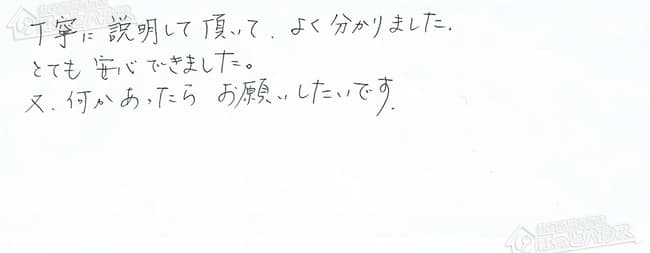 丁寧に説明して頂いて、よく分かりました.
とても安心できました。
又、何かあったらお願いしたいです.